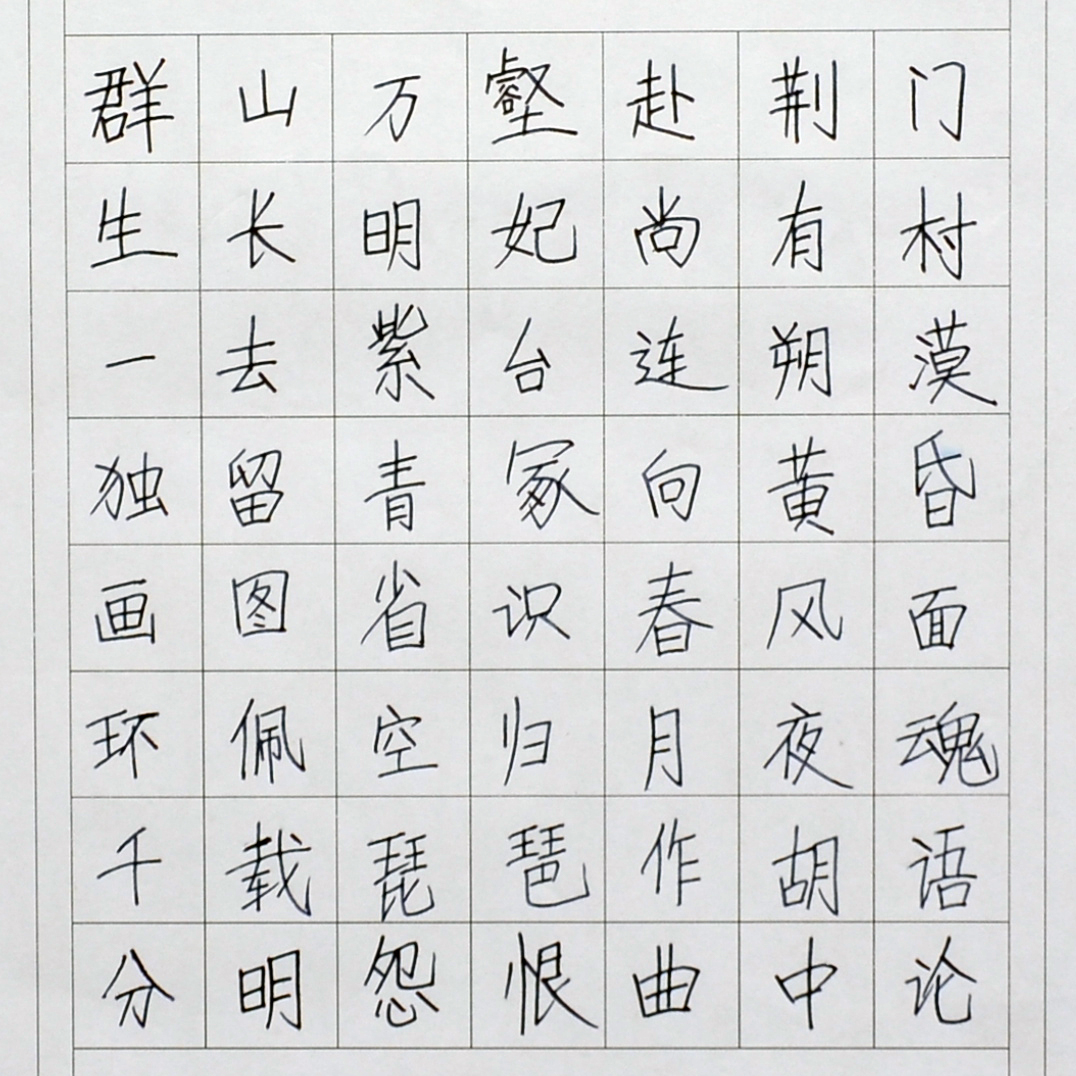 群山万壑赴荆门
生长明妃尚有村
一去紫台连朔漠
独留青冢向黄昏
画图省识春风面
环佩空归月夜魂
千载琵琶作胡语
分明怨恨曲中论